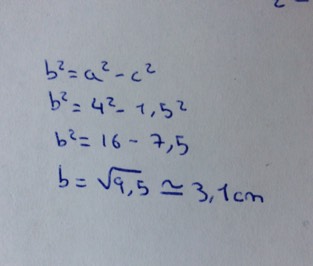 b² = a² - c²
b² = 4² - 1,5²
b² = 16 - 7,5
b = √9,5 ≃ 3,1cm